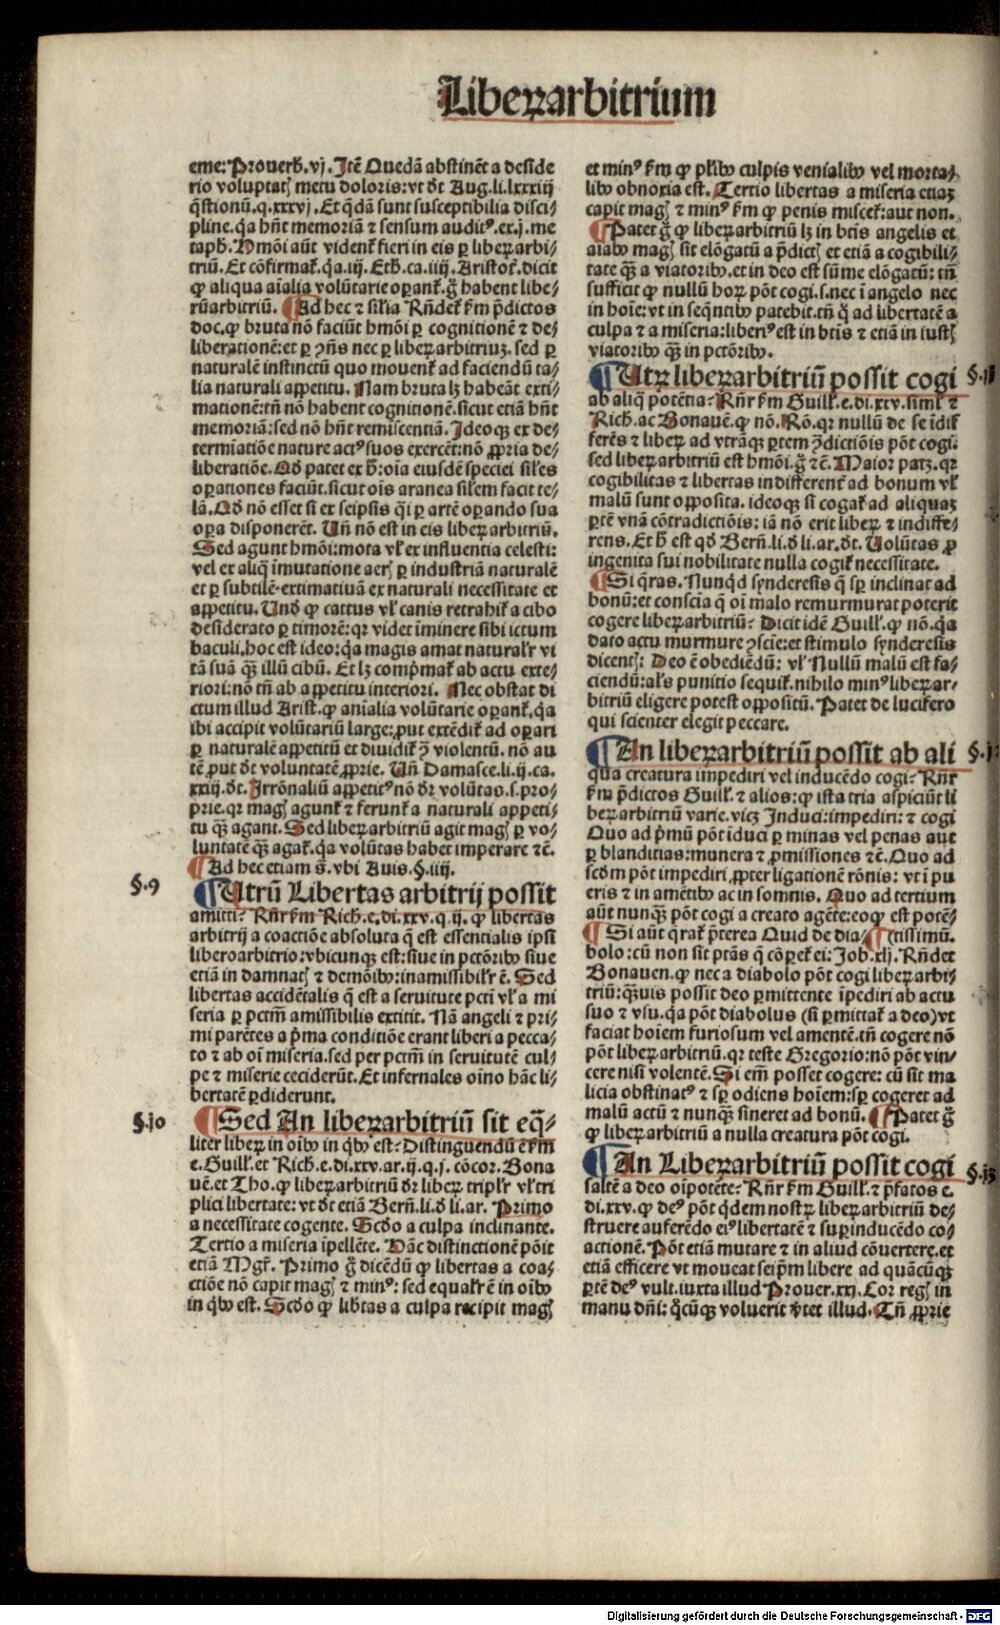 Liberarbitrium
eme: Prouerb̄.vj. Itē Quedā abstinēt a deside
rio voluptatꝭ metu doloris: vt dt Aug.li.lxxxiij
q̄stionū.q.xxxvj. Et q̄dā sunt susceptibilia disci/
pline.q̄a hn̄t memoriā ⁊ sensum auditꝰ.ex.j.me
taph̄. Hmōi aūt vident̄ fieri in eis ꝑ liberarbi/
triū. Et cōfirmat̄.q̄a.iij. Eth̄.ca.iiij. Aristot̄. dicit
ꝙ aliqua aīalia volūtarie oꝑant̄.g̊ habent libe/
rūarbitriū. ¶ Ad hec ⁊ sil'ia Rn̄det̄ ẜm p̄dictos
doc.ꝙ bruta nō faciūt hmōi ꝑ cognitionē ⁊ de/
liberationē: et ꝑ ꝯn̄s nec ꝑ liberarbitriuꝫ. sed ꝑ
naturalē instinctū quo mouent̄ ad faciendū ta/
lia naturali appetitu. Nam bruta lꝫ habeāt exti/
mationē: tn̄ nō habent cognitionē. sicut etiā hn̄t
memoriā: sed nō hn̄t remiscentiā. Ideoqꝫ ex de/
termīatiōe nature actꝰ suos exercēt: nō ꝓpria de/
liberatiōe. Qd̄ patet ex h̄: oīa eiusdē speciei sil'es
oꝑationes faciūt. sicut oīs aranea sil'em facit te/
lā. Qd̄ nō esset si ex seipsis q̄i ꝑ artē oꝑando sua
oꝑa disponerēt. Un̄ nō est in eis liberarbitriū.
Sed agunt hmōi: mota vl' ex influentia celesti:
vel ex aliq̄ īmutatione aerꝭ ꝑ industriā naturalē
et ꝑ subtilē extimatiuā ex naturali necessitate et
appetitu. Und̄ ꝙ cattus vl' canis retrahit̄ a cibo
desiderato ꝑ timorē: qꝛ videt īminere sibi ictum
baculi. hoc est ideo: q̄a magis amat natural'r vi
tā suā qꝫ illū cibū. Et lꝫ comp̄mat̄ ab actu exte/
riori: nō tn̄ ab appetitu interiori. Nec obstat di
ctum illud Arist. ꝙ anīalia volūtarie oꝑant̄. q̄a
ibi accipit volūtariū large: ꝓut extēdit̄ ad oꝑari
ꝑ naturalē appetitū et diuidit̄ ꝯ violentū. nō au
tē ꝓut dt voluntatē ꝓprie. Un̄ Damasce.li.ij.ca.
xxij.dt. Irrōnaliū appetitꝰ nō dr volūtas. s. pro/
prie. qꝛ magꝭ agunt̄ ⁊ ferunt̄ a naturali appeti/
tu qꝫ agant. Sed liberarbitriū agit magꝭ ꝑ vo/
luntatē qꝫ agat̄. q̄a volūtas habet imperare ⁊c̄.
¶ Ad hec etiam s̄. vbi Auis.§.iiij.
§.9
¶ Utrū Libertas arbitrij possit
amitti? Rn̄r ẜm Rich.e.di.xxv.q.ij. ꝙ libertas
arbitrij a coactiōe absoluta q̄ est essentialis ipsi
liberoarbitrio: vbicunqꝫ est: siue in pctōribꝰ siue
etiā in damnatꝭ ⁊ demōibꝰ: inamissibil'r ē. Sed
libertas accidētalis q̄ est a seruitute pcti vl' a mi
seria ꝑ pctm̄ amissibilis extitit. Nā angeli ⁊ pri/
mi parētes a p̄ma conditiōe erant liberi a pecca/
to ⁊ ab oī miseria. sed per pctm̄ in seruitutē cul/
pe ⁊ miserie ceciderūt. Et infernales oīno hāc li/
bertatē ꝑdiderunt.
§.jo
¶ Sed An liberarbitriū sit eq̄/
liter liberꝫ in oībꝰ in q̄bꝰ est? Distinguendū ē ẜm
e. Guill. et Rich.e.di.xxv.ar.ij.q.j. cōcor. Bona
uē. et Tho. ꝙ liberarbitriū dr liberꝫ tripl'r vl' tri
plici libertate: vt dt etiā Bern̄.li.d̄ li.ar. Primo
a necessitate cogente. Scd̄o a culpa inclinante.
Tertio a miseria īpellēte. Hāc distinctionē pōit
etiā Mgr̄. Primo g̊ dicēdū ꝙ libertas a coa/
ctiōe nō capit magꝭ ⁊ minꝰ: sed equal'r ē in oībꝰ
in q̄bꝰ est. Scd̄o ꝙ lib̄tas a culpa recipit magꝭ
et minꝰ ẜm ꝙ pl'ibꝰ culpis venialibꝰ vel morta/
libꝰ obnoxia est. Tertio libertas a miseria etiaꝫ
capit magꝭ ⁊ minꝰ ẜm ꝙ penis miscet̄: aut non.
¶ Patet g̊ ꝙ liberarbitriū lꝫ in btīs angelis et
aīabꝰ magꝭ sit elōgatū a p̄dictꝭ et etiā a cogibili/
tate qꝫ a viatoribꝰ. et in deo est sūme elōgatū: tn̄
sufficit ꝙ nullū hoꝝ pōt cogi. s. nec ī angelo nec
in hoīe: vt in seq̄ntibꝰ patebit. tn̄ q̊ ad libertatē a
culpa ⁊ a miseria: liberiꝰ est in btīs ⁊ etiā in iustꝭ
viatoribꝰ qꝫ in pctōribꝰ.
¶ Utꝝ liberarbitriū possit cogi §.ij
ab aliq̄ potētia? Rn̄r ẜm Guill.e.di.xxv. simil' ⁊
Rich. ac Bonauē. ꝙ nō. Rō. qꝛ nullū de se īdif
ferēs ⁊ liberꝫ ad vtrāqꝫ ꝑtem ꝯdictiōis pōt cogi.
sed liberarbitriū est hmōi. g̊ ⁊c̄. Maior patꝫ. qꝛ
cogibilitas ⁊ libertas indifferent̄ ad bonum vl'
malū sunt opposita. ideoqꝫ si cogat̄ ad aliquaꝫ
ꝑtē vnā cōtradictiōis: iā nō erit liberꝫ ⁊ indiffe/
rens. Et h̄ est qd̄ Bern̄.li.d̄ li.ar.dt. Volūtas ꝓ
ingenita sui nobilitate nulla cogit̄ necessitate.
¶ Si q̄ras. Nunqd̄ synderesis q̄ sꝑ inclinat ad
bonū: et conscīa q̄ oī malo remurmurat poterit
cogere liberarbitriū? Dicit idē Guill'. ꝙ nō. q̄a
dato actu murmure ꝯscīe: et stimulo synderesis
dicentꝭ: Deo ē obediēdū: vl' Nullū malū est fa/
ciendū: al's punitio sequit̄. nihilo minꝰ liberar/
bitriū eligere potest oppositū. Patet de lucifero
qui scienter elegit peccare.
¶ An liberarbitriū possit ab ali §.j
qua creatura impediri vel inducēdo cogi? Rn̄r
ẜm p̄dictos Guill'. ⁊ alios: ꝙ ista tria aspiciūt li
berarbitriū varie. vicꝫ Induci: impediri: ⁊ cogi
Quo ad p̄mū pōt īduci ꝑ minas vel penas aut
ꝑ blanditias: munera ⁊ ꝓmissiones ⁊c̄. Quo ad
scd̄m pōt impediri ꝓpter ligationē rōnis: vt ī pu
eris ⁊ in amētibꝰ ac in somnis. Quo ad tertium
aūt nunqꝫ pōt cogi a creato agēte: eoꝙ est potē/
¶ Si aūt q̄rat̄ p̄terea Quid de dia/ ¶ tissimū.
bolo: cū non sit ptās q̄ cōꝑet̄ ei: Job.xlj. Rn̄det
Bonauen. ꝙ nec a diabolo pōt cogi liberarbi/
triū: qꝫuis possit deo ꝑmittente īpediri ab actu
suo ⁊ vsu. q̄a pōt diabolus (si ꝑmittat̄ a deo) vt
faciat hoīem furiosum vel amentē. tn̄ cogere nō
pōt liberarbitriū. qꝛ teste Gregorio: nō pōt vin/
cere nisi volentē. Si em̄ posset cogere: cū sit ma
licia obstinatꝰ ⁊ sꝑ odiens hoīem: sꝑ cogeret ad
malū actū ⁊ nunqꝫ sineret ad bonū. ¶ Patet g̊
ꝙ liberarbitriū a nulla creatura pōt cogi.
¶ An Liberarbitriū possit cogi §.j3
saltē a deo oīpotēte? Rn̄r ẜm Guill'. ⁊ p̄fatos e.
di.xxv. ꝙ deꝰ pōt q̄dem nostꝝ liberarbitriū de/
struere auferēdo eiꝰ libertatē ⁊ suꝑinducēdo co/
actionē. Pōt etiā mutare ⁊ in aliud cōuertere. et
etiā efficere vt moueat seip̄m libere ad quācūqꝫ
ꝑtē deꝰ vult. iuxta illud Prouer.xxj. Cor regꝭ in
manu dn̄i: q̊cūqꝫ voluerit v̄tet illud. Tn̄ ꝓprie
Digitalisierung gefördert durch die Deutsche Forschungsgemeinschaft - DFG